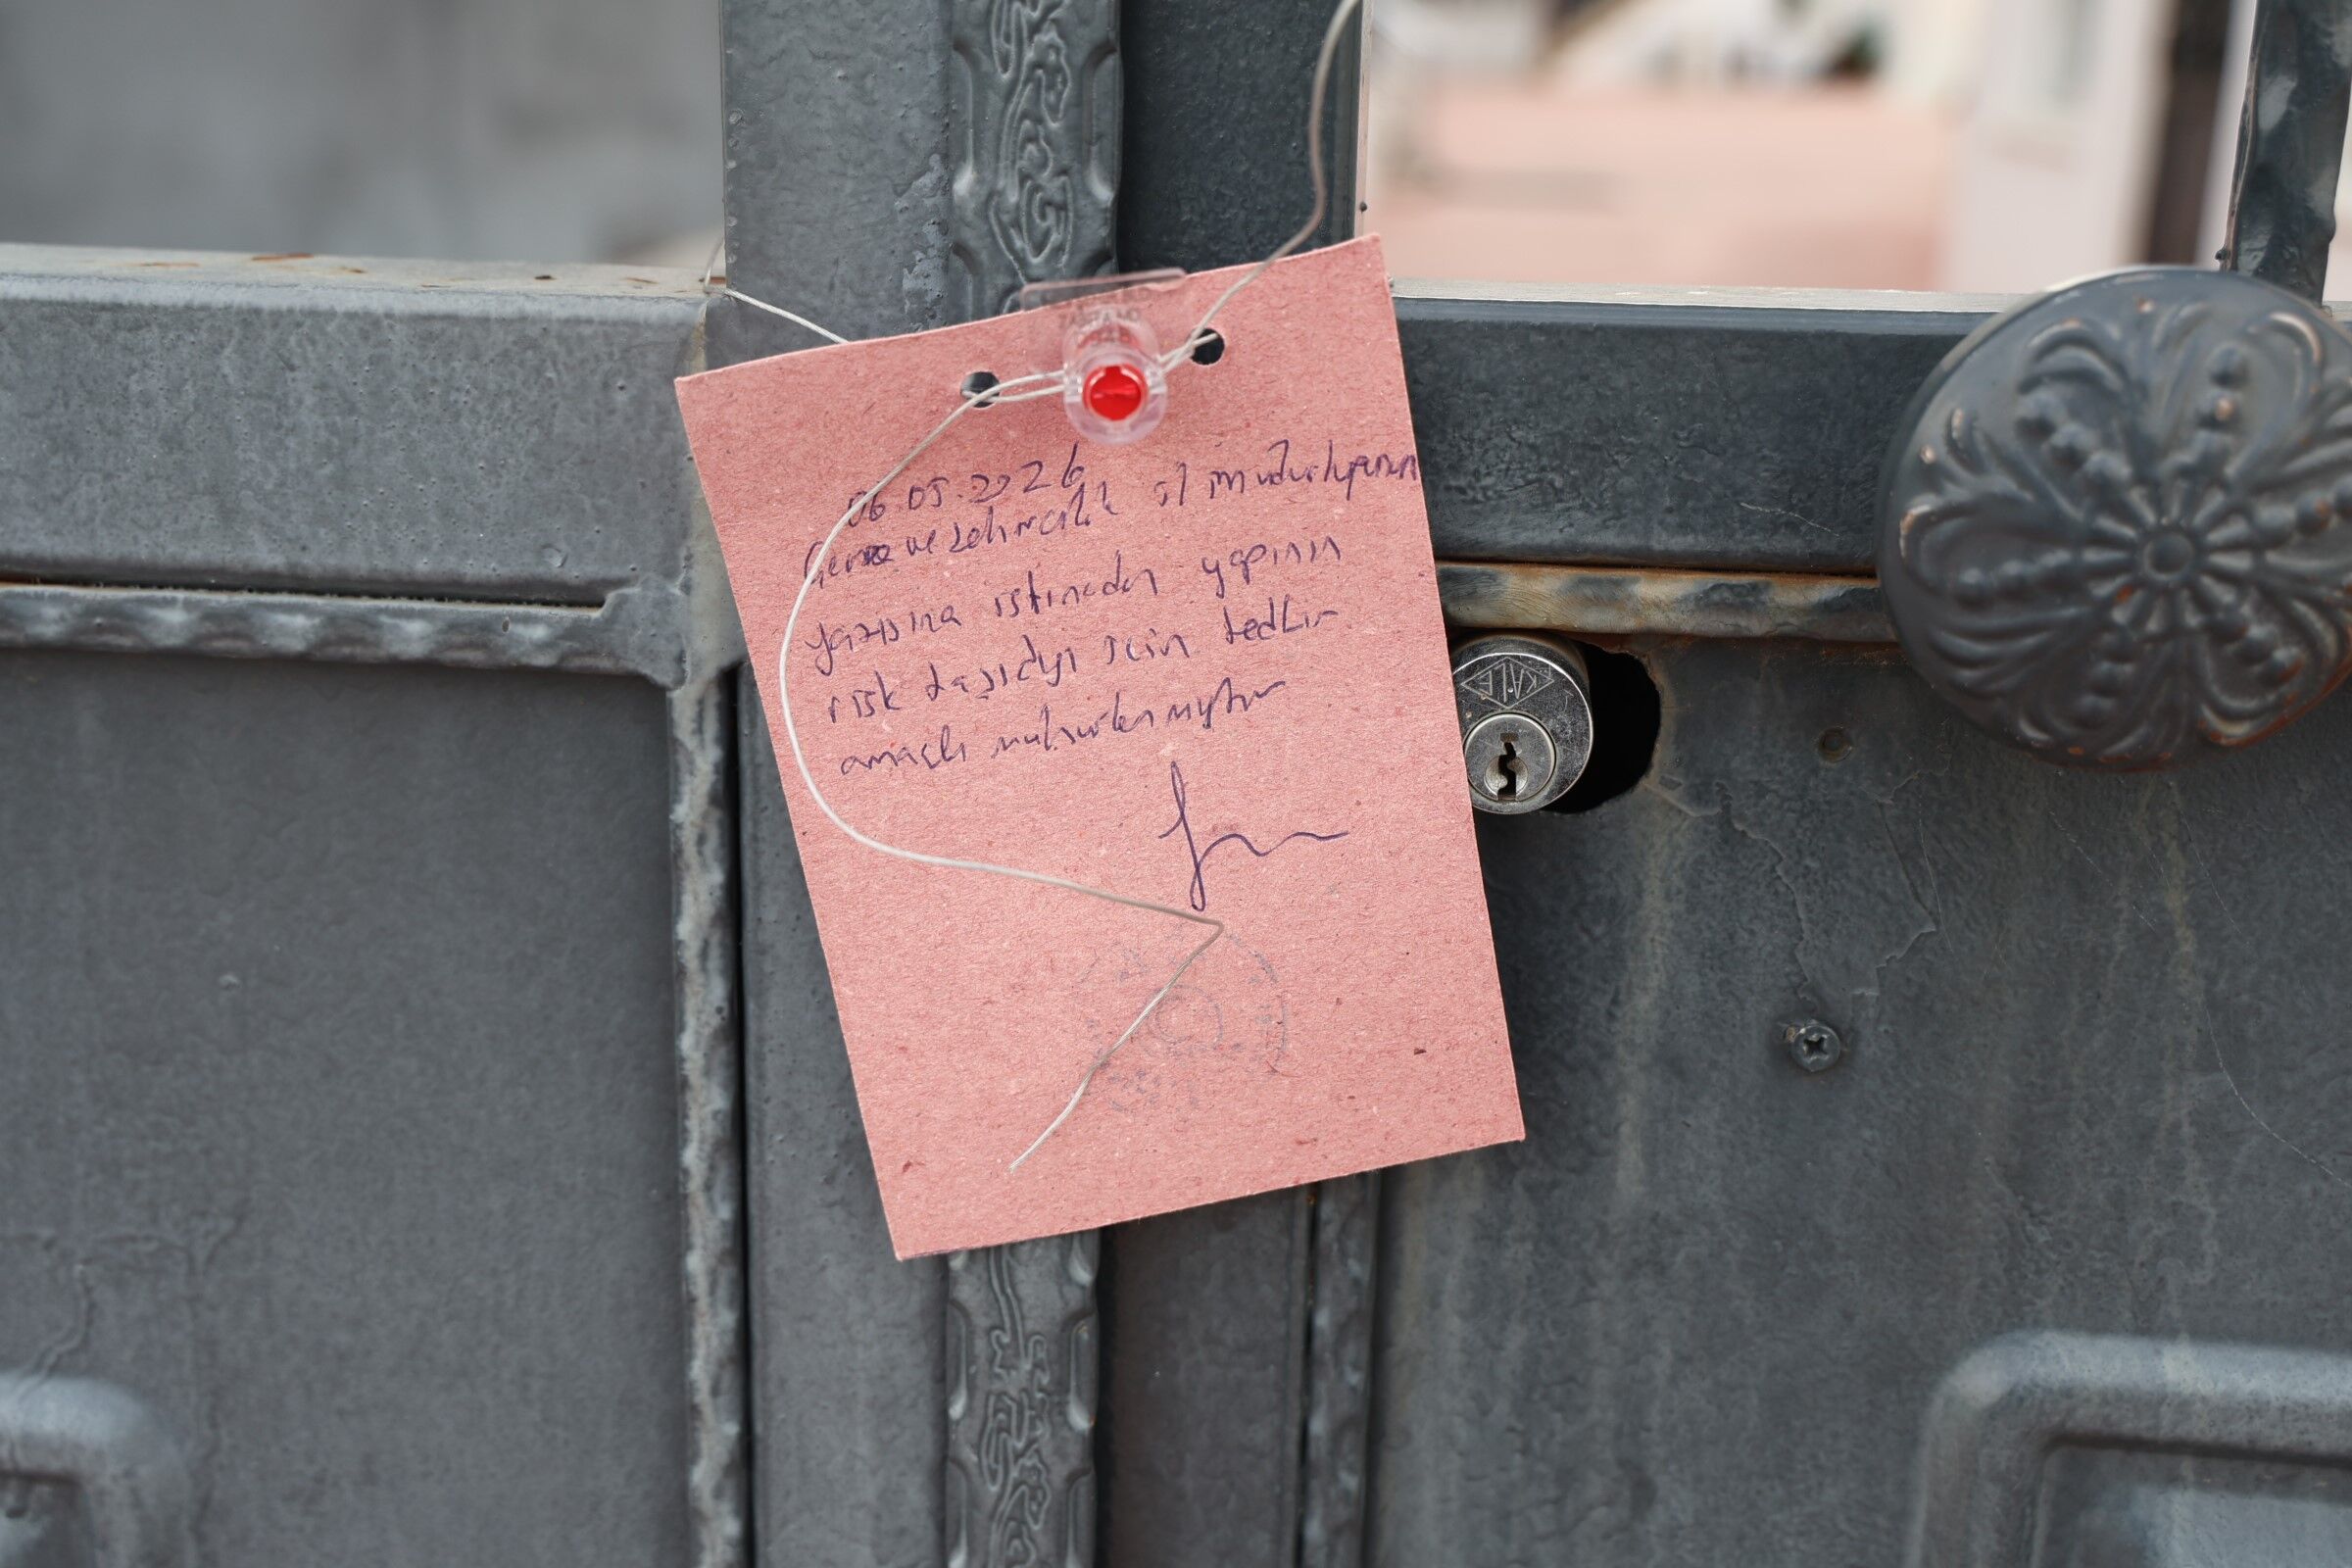 06.05.2026
Çevre ve Şehircilik il müdürlüğünün
yazısına istinaden yapının
risk taşıdığı için tedbir
amaçlı mühürlenmiştir
KALE